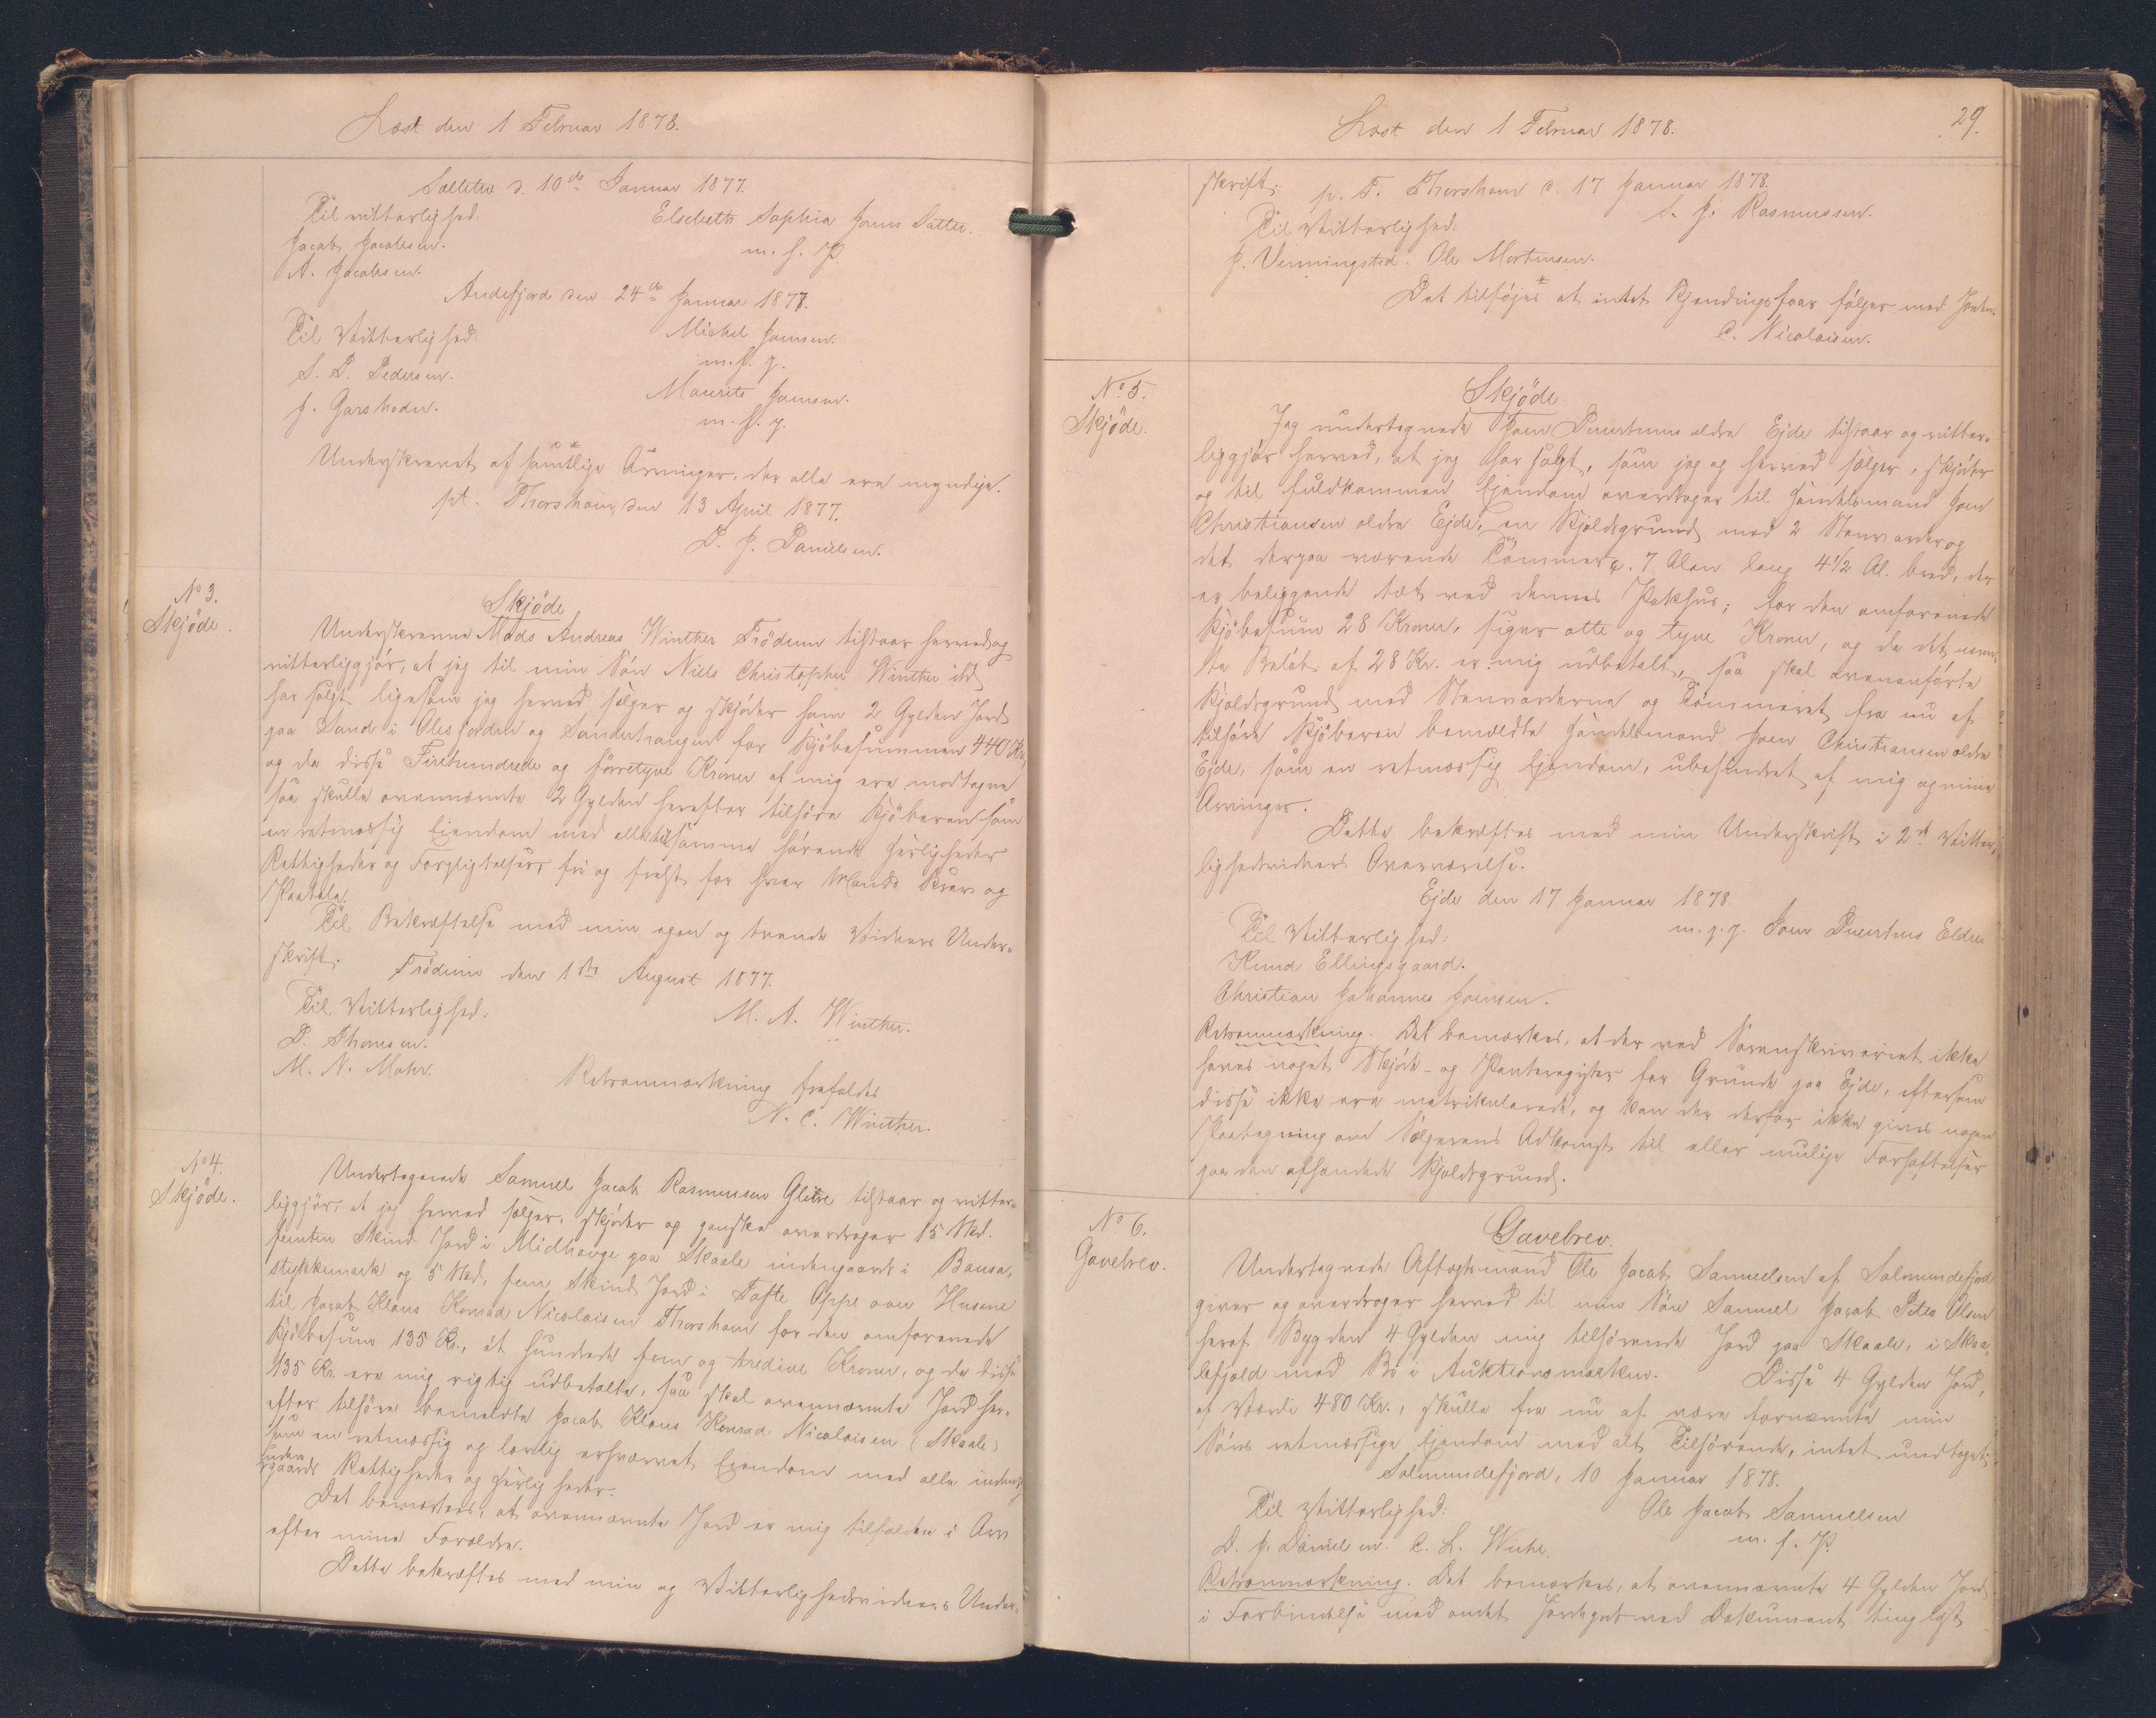 Læst den 1 Februar 1878.
Sælleten d. 10de Januar 1877.
Til vitterlighed: Elsebeth Sophia Joens Datter.
Jacob Jacobsen. m. f. P.
A. Jacobsen.
Andefjord den 24de Januar 1877.
Til Vitterlighed: Michel Joensen.
S. P. Pedersen. m. f. P.
J. Garshodn. Maurits Joensen.
m. f. P.
Underskrevet af samtlige Arvinger, der alle ere myndige.
pt. Thorshavn, den 13 April 1877.
D. J. Danielsen.
No 3.
Skjöde.
Skjöde
Underskrevne Mads Andreas Winther Frödum tilstaar herved og
vitterliggjör, at jeg til min Sön Niels Christopher Winther ibd
har solgt ligesom jeg herved sælger og skjöder ham 2 Gylden Jord
paa Sand i Olesjorden og Sondertraugum for Kjöbesummen 440 Kr,
og da disse Firehundrede og förretyve Kroner af mig ere modtagne
saa skulle ovennævnte 2 Gylden herefter tilhöre Kjöberen som
en retmæssig Eiendom med alle til samme hörende Herligheder
Rettigheder og Forpligtelser, fri og frelst for hver Mands Krav og
Paatale.
Til Bekræftelse med min egen og tvende Vidners Under-
skrift.
Frödum den 1ste August 1877.
Til Vitterlighed: M. A. Winther.
D. Thomsen.
M. N. Mohr.
Retsanmærkning frafaldes
N. C. Winther.
No 4.
Skjöde.
Undertegnede Samuel Jacob Rasmussen Glibre tilstaar og vitter-
liggjör, at jeg herved sælger, skjöder og ganske overdrager 15 Skd.
femten Skind Jord i Midhauge paa Skaale indengaards i Bausa-
stykkemark og 5 Skd, fem Skind Jord i Tofte Oppe over Husene
til Jacob Klaus Konrad Nicolaisen Thorshavn for den omforenede
Kjöbesum 135 Kr., ét hundrede fem og tredive Kroner, og da disse
135 Kr. ere mig rigtig udbetalte, saa skal ovennævnte Jord her-
efter tilhöre bemeldte Jacob Klaus Konrad Nicolaisen (Skaale)
som en retmæssig og lovlig erhvervet Eiendom med alle inden og
uden
gaards Rettigheder og Herligheder.
Det bemærkes, at ovennævnte Jord er mig tilfalden i Arv
efter mine Forældre.
Dette bekræftes med min og Vitterlighedsvidners Under-
Læst den 1 Februar 1878. 29.
skrift.
p. T. Thorshavn d. 17 Januar 1878.
Til Vitterlighed: S. J. Rasmussen.
J. Venningsted. Ole Mortensen.
Det tilföjes at intet Kjendingsfaar fölger med Jorden.
C. Nicolaisen.
No. 5.
Skjöde.
Skjöde
Jeg undertegnede Joen Duurtuns ældre Ejde tilstaar og vitter-
liggjör herved, at jeg har solgt, som jeg og herved sælger, skjöder
og til fuldkommen Ejendom overdrager til Handelsmand Joen
Christiansen ældre Ejde, en Kjoldsgrund med 2 Stenvarder og
det derpaa værende Tömmer c. 7 Alen lang 4 1/2 Al. bred, der
er beliggende tæt ved dennes Pakhus; for den omforenede
Kjöbesum 28 Kroner, siger otte og tyve Kroner, og da det nævn-
te Belöb af 28 Kr. er mig udbetalt, saa skal ovenanförte
Kjoldsgrund med Stenvarderne og Tömmeret fra nu af
tilhöre Kjöberen bemeldte Handelsmand Joen Christiansen ældre
Ejde, som en retmæssig Ejendom, ubehindret af mig og mine
Arvinger.
Dette bekræftes med min Underskrift i 2de Vitter-
lighedsvidners Overværelse.
Ejde den 17 Januar 1878.
Til Vitterlighed: m. f. P. Joen Duurtuns Eldre
Knud Ellingsgaard.
Christian Johannes Joensen.
Retsanmærkning. Det bemærkes, at der ved Sorenskriveriet ikke
haves noget Skjöde- og Panteregister for Grunde paa Ejde, eftersom
disse ikke ere matrikulerede, og kan der derfor ikke gives nogen
Paategning om Sælgerens Adkomst til eller mulige Forhæftelser
paa den afhændede Kjoldsgrund.
No 6.
Gavebrev.
Gavebrev.
Undertegnede Aftægtsmand Ole Jacob Samuelsen af Salmundefjord
giver og overdrager herved til min Sön Samuel Jacob Peter Olsen
heraf Bygden 4 Gylden mig tilhörende Jord paa Skaale, i Skaa-
lefjeld med Bö i Auktionsmarken. Disse 4 Gylden Jord,
af Værdi 480 Kr., skulle fra nu af være fornævnte min
Söns retmæssige Ejendom med alt Tilhörende, intet undtaget.
Salmundefjord, 10 Januar 1878.
Til Vitterlighed: Ole Jacob Samuelsen
D. J. Danielsen. C. L. Wiehe. m. f. P.
Retsanmærkning. Det bemærkes, at ovennævnte 4 Gylden Jord
i Forbindelse med andet Jordegods ved Dokument tinglæst